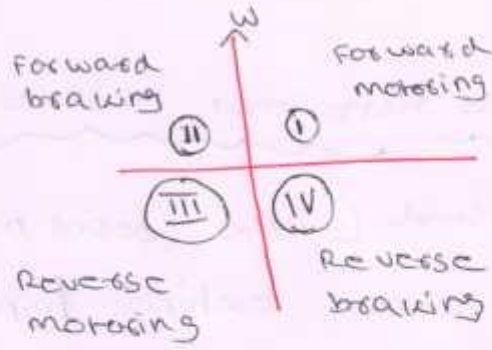 ω
Forward
braking
Forward
motoring
II
I
III
IV
Reverse
motoring
Reverse
braking